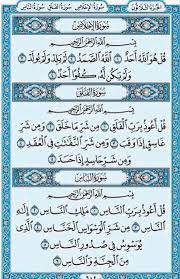 سُورَةُ الإِخْلَاصِ
بِسْمِ اللَّهِ الرَّحْمَٰنِ الرَّحِيمِ
قُلْ هُوَ اللَّهُ أَحَدٌ ۝١ اللَّهُ الصَّمَدُ ۝٢ لَمْ يَلِدْ وَلَمْ يُولَدْ
۝٣ وَلَمْ يَكُن لَّهُ كُفُوًا أَحَدٌ ۝٤
سُورَةُ الفَلَقِ
بِسْمِ اللَّهِ الرَّحْمَٰنِ الرَّحِيمِ
قُلْ أَعُوذُ بِرَبِّ الْفَلَقِ ۝١ مِن شَرِّ مَا خَلَقَ ۝٢ وَمِن شَرِّ
غَاسِقٍ إِذَا وَقَبَ ۝٣ وَمِن شَرِّ النَّفَّاثَاتِ فِي الْعُقَدِ ۝٤
وَمِن شَرِّ حَاسِدٍ إِذَا حَسَدَ ۝٥
سُورَةُ النَّاسِ
بِسْمِ اللَّهِ الرَّحْمَٰنِ الرَّحِيمِ
قُلْ أَعُوذُ بِرَبِّ النَّاسِ ۝١ مَلِكِ النَّاسِ ۝٢ إِلَٰهِ
النَّاسِ ۝٣ مِن شَرِّ الْوَسْوَاسِ الْخَنَّاسِ ۝٤ الَّذِي
يُوَسْوِسُ فِي صُدُورِ النَّاسِ ۝٥
مِنَ الْجِنَّةِ وَالنَّاسِ ۝٦